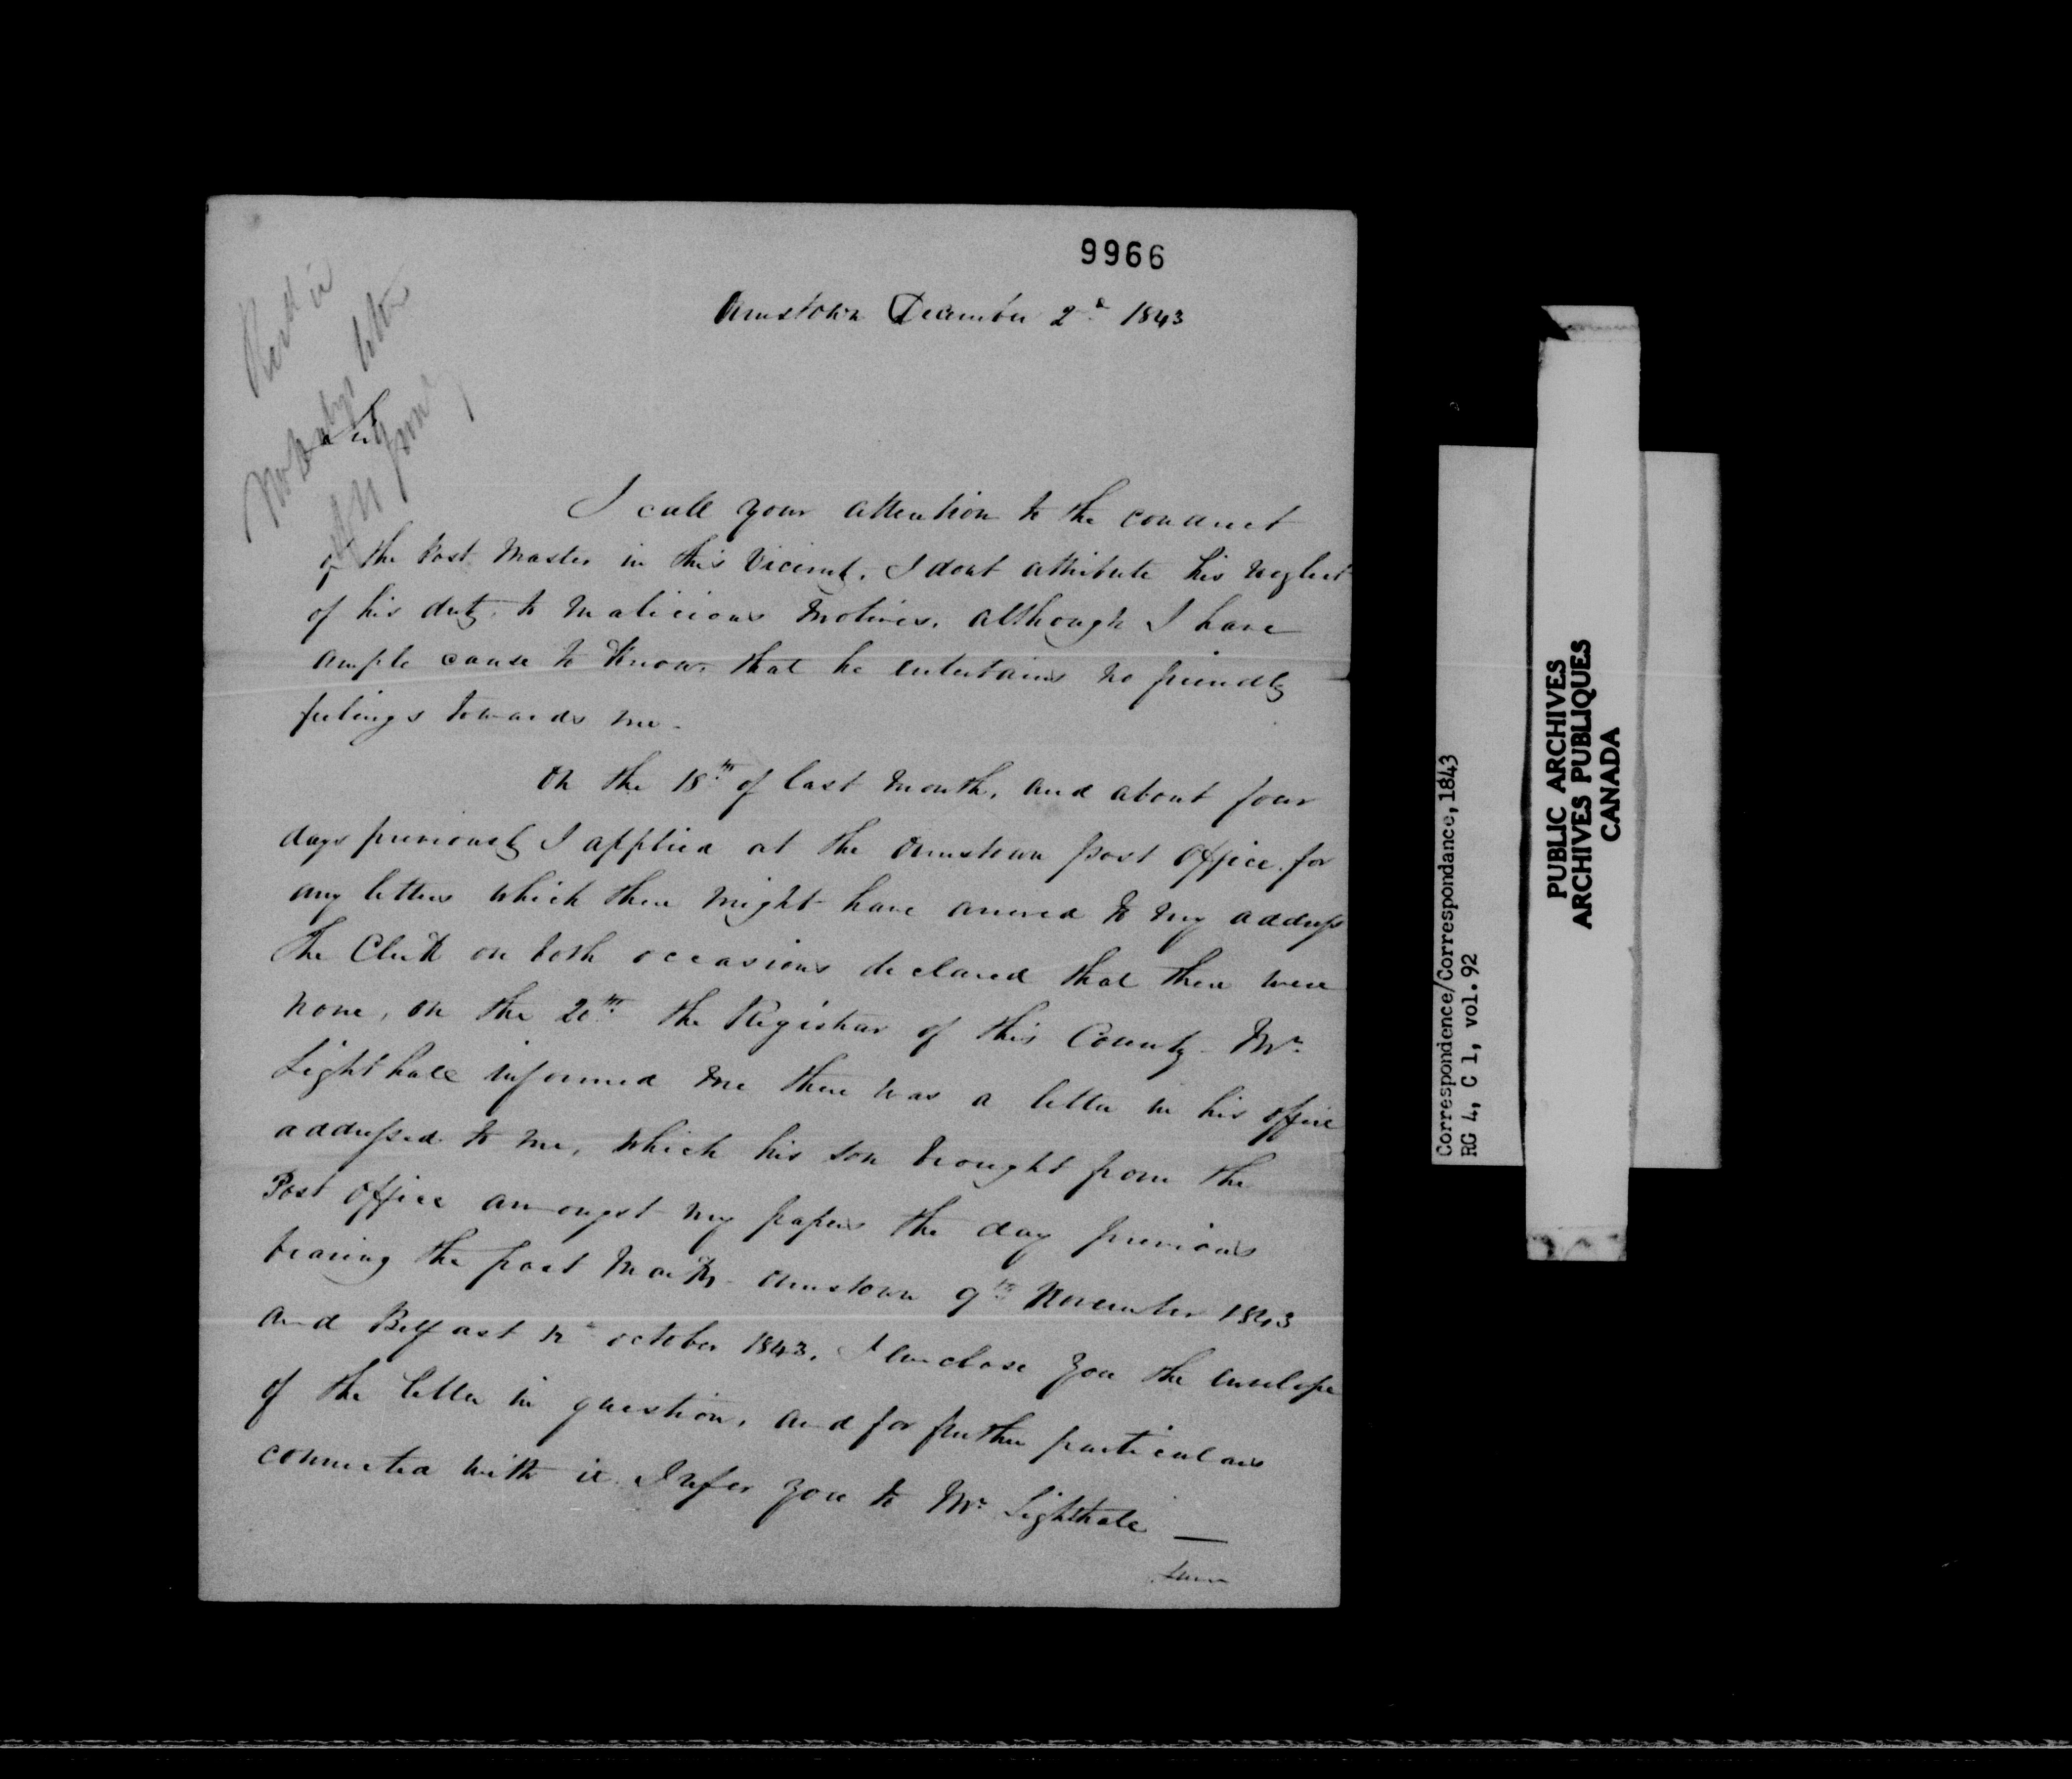 9966
Ormstown December 2d 1843
Sir
I call your attention to the conduct
of the Post Master in this Vicinity. I dont attribute his neglect
of his duty, to malicious motives, although I have
ample cause to Know that he entertains no friendly
feelings towards me.
On the 18th of last month, and about four
days previously I applied at the Ormstown post office for
any letters which there might have arrived to my address
the Clerk on both occasions declared that there were
none, on the 20th the Registrar of this County Mr
Lighthall informed me there was a letter in his office
addressed to me, which his son brought from the
Post office amongst my papers the day previous
bearing the post mark Ormstown 9th November 1843
and Belfast 12 october 1843. I enclose you the envelope
of the letter in question, and for further particulars
connected with it I refer you to Mr Lighthall —
Correspondence/Correspondance, 1843
RG 4, C 1, vol. 92
PUBLIC ARCHIVES
ARCHIVES PUBLIQUES
CANADA